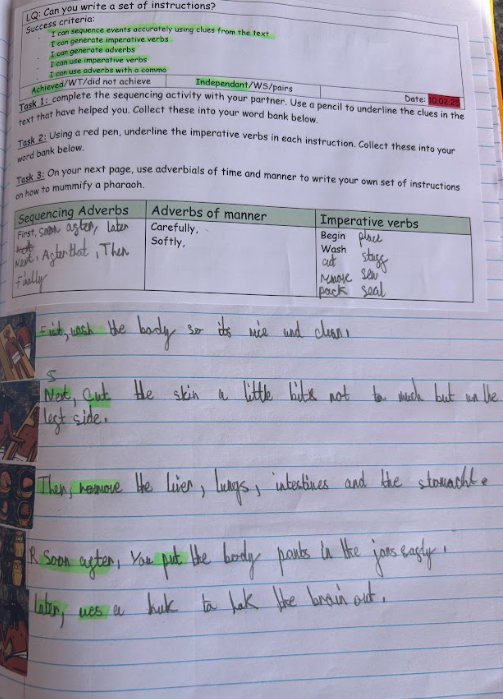 LQ: Can you write a set of instructions?
Success criteria:
I can sequence events accurately using clues from the text
I can generate imperative verbs
I can generate adverbs
I can use imperative verbs
I can use adverbs with a comma
Achieved/WT/did not achieve Independant/WS/pairs Date: 10.02.25
Task 1: complete the sequencing activity with your partner. Use a pencil to underline the clues in the
text that have helped you. Collect these into your word bank below.
Task 2: Using a red pen, underline the imperative verbs in each instruction. Collect these into your
word bank below.
Task 3: On your next page, use adverbials of time and manner to write your own set of instructions
on how to mummify a pharaoh.
Sequencing Adverbs Adverbs of manner Imperative verbs
First, Soon agter, later Carefully, Begin place
Softly, Wash stugg
Next, Agter that, Then cut sew
Finally remove seal
pack
First, wash the body so its nice and clean.
S
Next, Cut the skin a little bit not to much but on the
legt side.
Then, remove the liver, lungs, intestines and the stomacht.
R Soon agter, You put the bordy parts in the jars
later, ues a huk to tak the brain out.